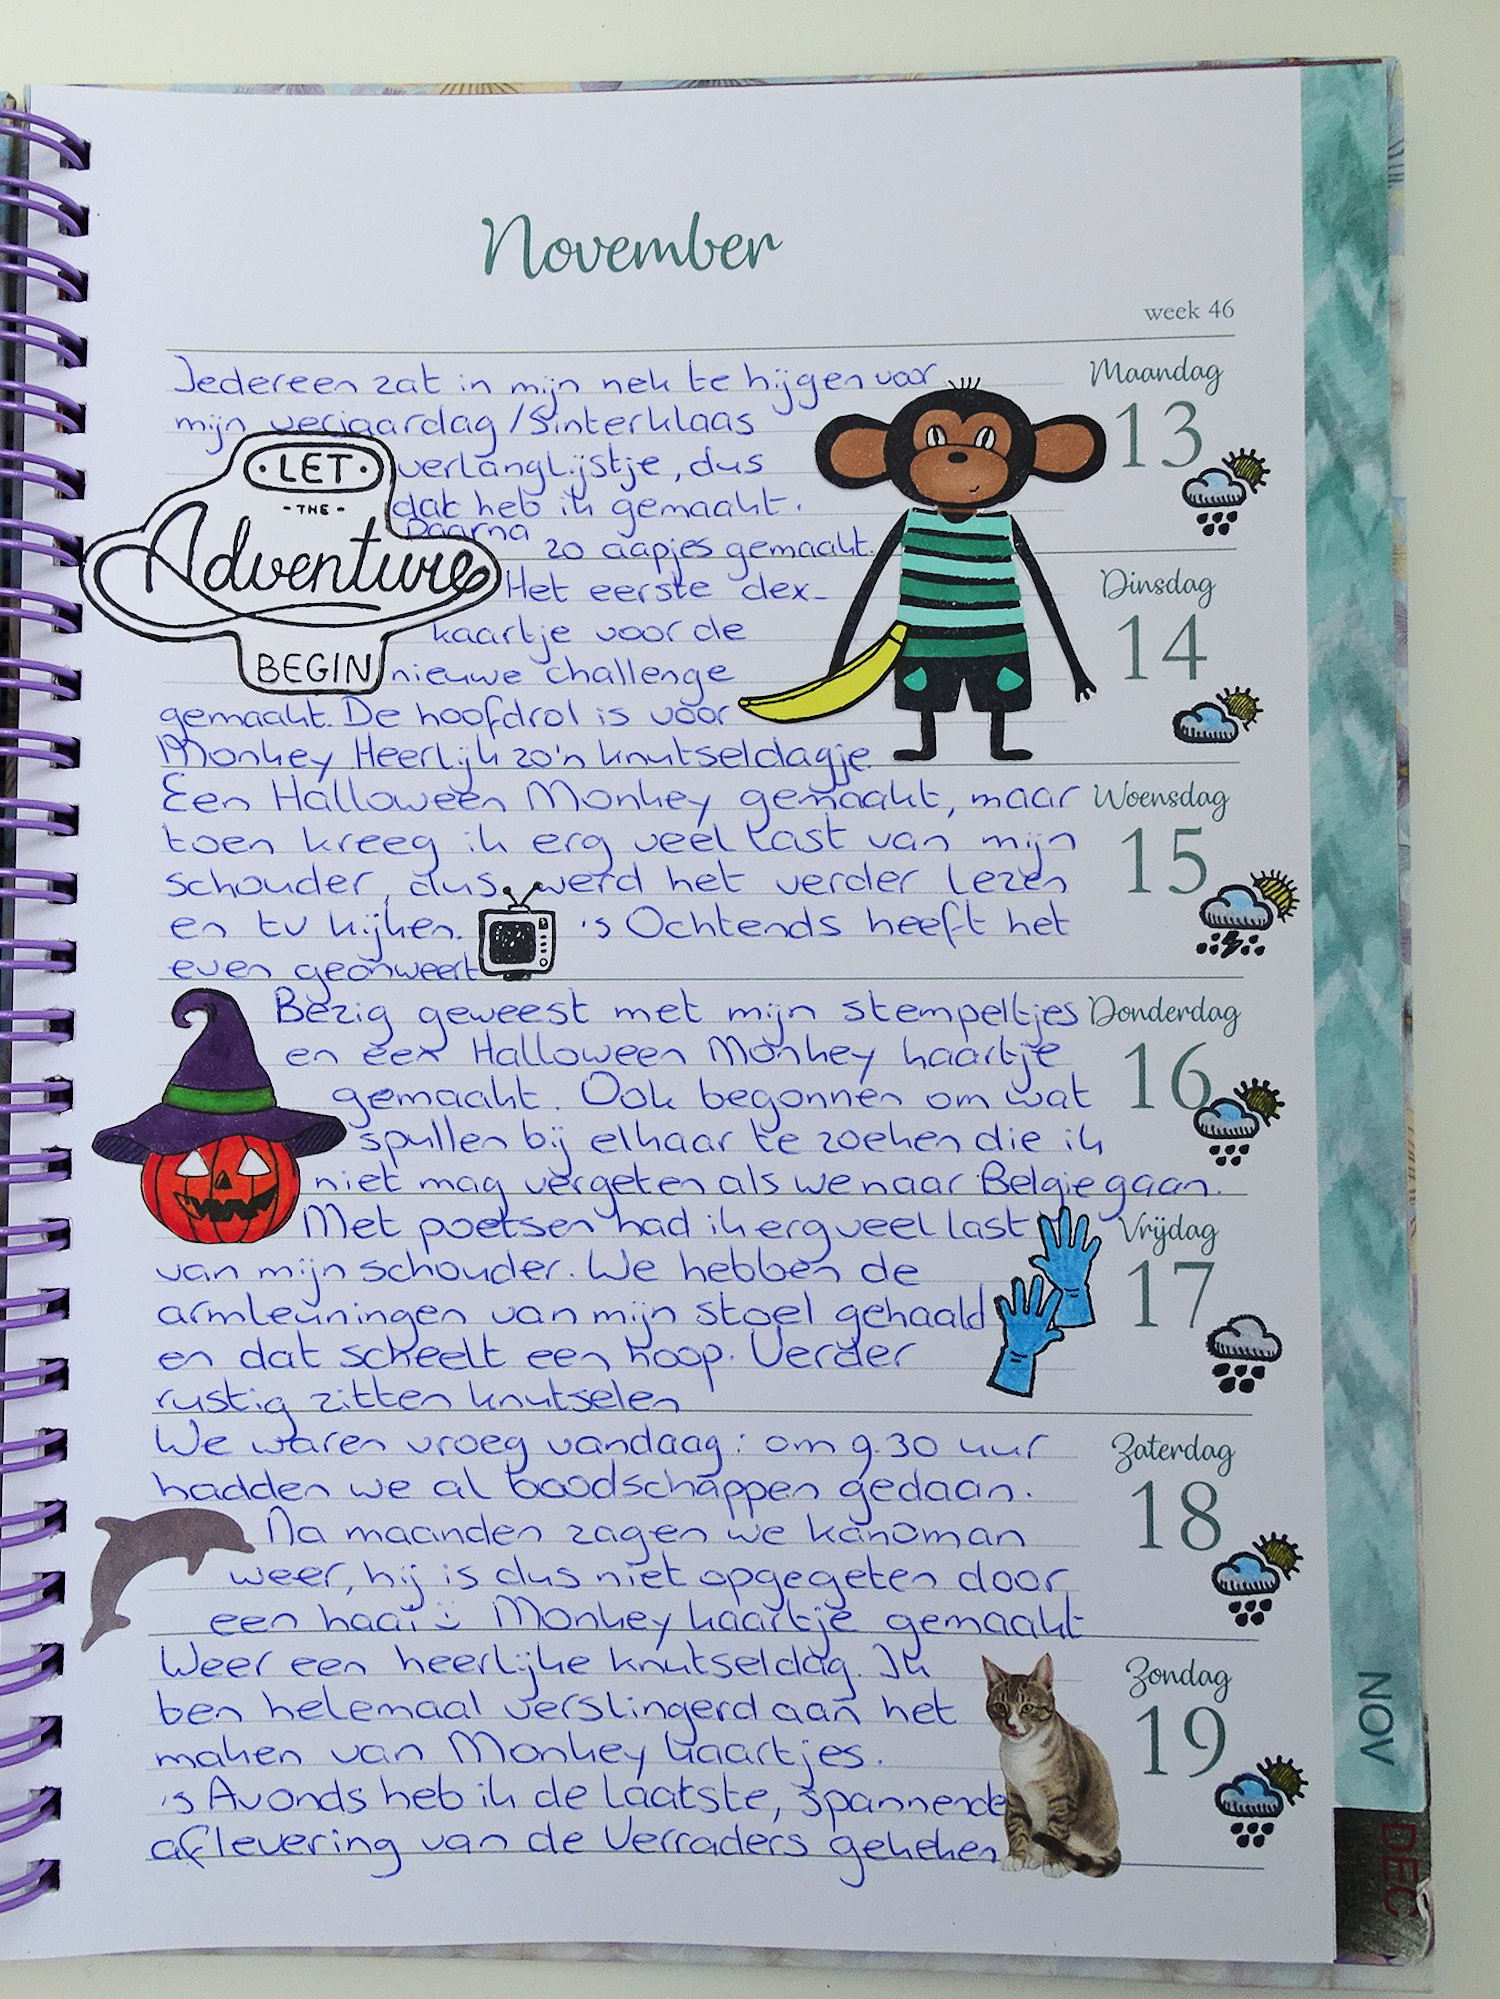 November
week 46
Iedereen zat in mijn nek te hijgen voor
mijn verjaardag /Sinterklaas
verlanglijstje, dus
dat heb ik gemaakt.
Daarna 20 aapjes gemaakt.
Maandag
13
LET
- THE -
Adventure
BEGIN
Het eerste clex-
kaartje voor de
nieuwe challenge
gemaakt. De hoofdrol is voor
Monkey Heerlijk zo'n knutseldagje
Dinsdag
14
Een Halloween Monkey gemaakt, maar
toen kreeg ik erg veel last van mijn
schouder, dus werd het verder lezen
en tv kijken. 's Ochtends heeft het
even geonweert
Woensdag
15
Bezig geweest met mijn stempeltjes
en een Halloween Monkey kaartje
gemaakt. Ook begonnen om wat
spullen bij elkaar te zoeken die ik
niet mag vergeten als we naar Belgie gaan.
Donderdag
16
Met poetsen had ik erg veel last
van mijn schouder. We hebben de
armleuningen van mijn stoel gehaald
en dat scheelt een hoop. Verder
rustig zitten knutselen
Vrijdag
17
We waren vroeg vandaag: om 9.30 uur
hadden we al boodschappen gedaan.
Na maanden zagen we kanoman
weer, hij is dus niet opgegeten door
een haai :) Monkey kaartje gemaakt
Zaterdag
18
Weer een heerlijke knutseldag. Ik
ben helemaal verslingerd aan het
maken van Monkey kaartjes.
's Avonds heb ik de laatste, spannende
aflevering van de Verraders gekeken
Zondag
19
NOV
DEC